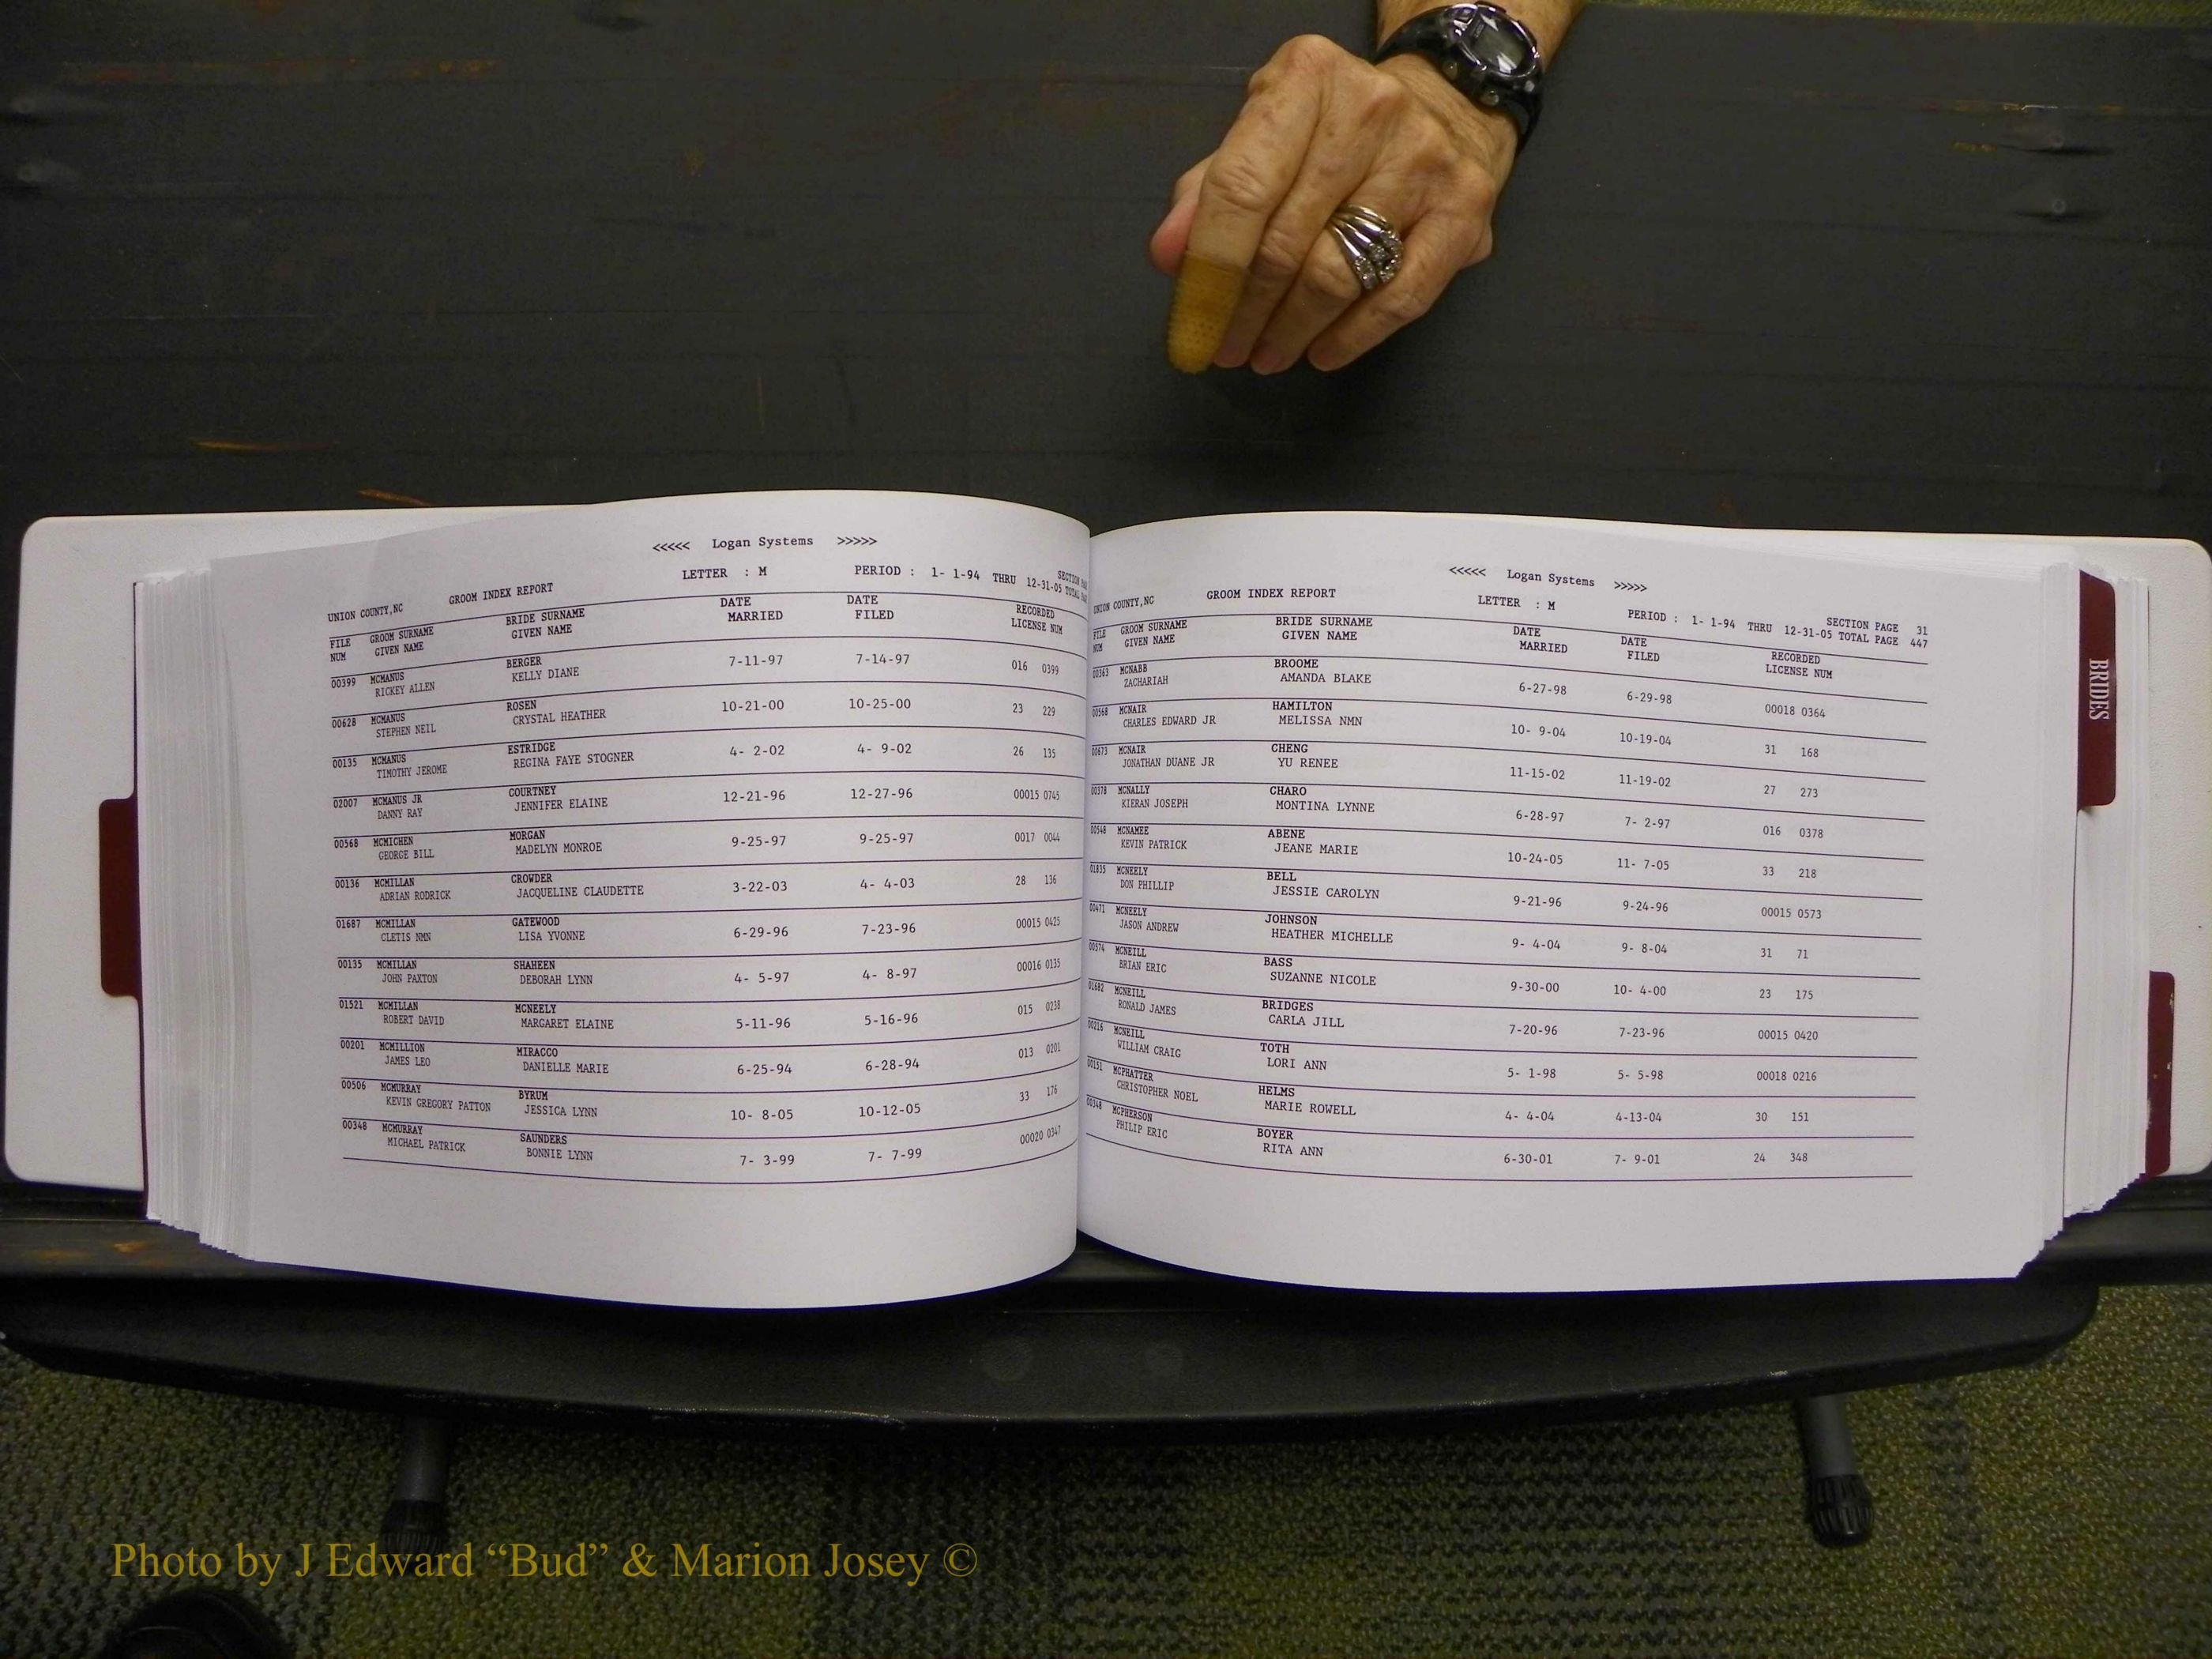 <<<<< Logan Systems >>>>>
LETTER : M PERIOD : 1- 1-94 THRU 12-31-05 TOTAL
SECTION
UNION COUNTY,NC GROOM INDEX REPORT
FILE GROOM SURNAME BRIDE SURNAME DATE DATE RECORDED
NUM GIVEN NAME GIVEN NAME MARRIED FILED LICENSE NUM
00399 MCMANUS BERGER 7-11-97 7-14-97 016 0399
RICKEY ALLEN KELLY DIANE
00628 MCMANUS ROSEN 10-21-00 10-25-00 23 229
STEPHEN NEIL CRYSTAL HEATHER
00135 MCMANUS ESTRIDGE 4- 2-02 4- 9-02 26 135
TIMOTHY JEROME REGINA FAYE STOGNER
02007 MCMANUS JR COURTNEY 12-21-96 12-27-96 00015 0745
DANNY RAY JENNIFER ELAINE
00568 MCMICHEN MORGAN 9-25-97 9-25-97 0017 0044
GEORGE BILL MADELYN MONROE
00136 MCMILLAN CROWDER 3-22-03 4- 4-03 28 136
ADRIAN RODRICK JACQUELINE CLAUDETTE
01687 MCMILLAN GATEWOOD 6-29-96 7-23-96 00015 0425
CLETIS NMN LISA YVONNE
00135 MCMILLAN SHAHEEN 4- 5-97 4- 8-97 00016 0135
JOHN PAXTON DEBORAH LYNN
01521 MCMILLAN MCNEELY 5-11-96 5-16-96 015 0238
ROBERT DAVID MARGARET ELAINE
00201 MCMILLION MIRACCO 6-25-94 6-28-94 013 0201
JAMES LEO DANIELLE MARIE
00506 MCMURRAY BYRUM 10- 8-05 10-12-05 33 176
KEVIN GREGORY PATTON JESSICA LYNN
00348 MCMURRAY SAUNDERS 7- 3-99 7- 7-99 00020 0347
MICHAEL PATRICK BONNIE LYNN
<<<<< Logan Systems >>>>>
LETTER : M PERIOD : 1- 1-94 THRU 12-31-05 TOTAL PAGE 447
SECTION PAGE 31
UNION COUNTY,NC GROOM INDEX REPORT
FILE GROOM SURNAME BRIDE SURNAME DATE DATE RECORDED
NUM GIVEN NAME GIVEN NAME MARRIED FILED LICENSE NUM
00363 MCNABB BROOME 6-27-98 6-29-98 00018 0364
ZACHARIAH AMANDA BLAKE
00568 MCNAIR HAMILTON 10- 9-04 10-19-04 31 168
CHARLES EDWARD JR MELISSA NMN
00673 MCNAIR CHENG 11-15-02 11-19-02 27 273
JONATHAN DUANE JR YU RENEE
00378 MCNALLY CHARO 6-28-97 7- 2-97 016 0378
KIERAN JOSEPH MONTINA LYNNE
00548 MCNAMEE ABENE 10-24-05 11- 7-05 33 218
KEVIN PATRICK JEANE MARIE
01835 MCNEELY BELL 9-21-96 9-24-96 00015 0573
DON PHILLIP JESSIE CAROLYN
00471 MCNEELY JOHNSON 9- 4-04 9- 8-04 31 71
JASON ANDREW HEATHER MICHELLE
00574 MCNEILL BASS 9-30-00 10- 4-00 23 175
BRIAN ERIC SUZANNE NICOLE
01682 MCNEILL BRIDGES 7-20-96 7-23-96 00015 0420
RONALD JAMES CARLA JILL
00216 MCNEILL TOTH 5- 1-98 5- 5-98 00018 0216
WILLIAM CRAIG LORI ANN
00151 MCPHATTER HELMS 4- 4-04 4-13-04 30 151
CHRISTOPHER NOEL MARIE ROWELL
00348 MCPHERSON BOYER 6-30-01 7- 9-01 24 348
PHILIP ERIC RITA ANN
BRIDES
Photo by J Edward “Bud” & Marion Josey ©